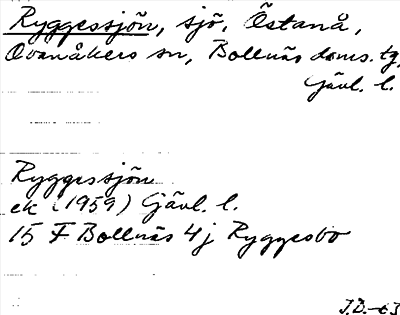 Ryggessjön, sjö, Östanå,
Ovanåkers sn, Bollnäs doms. tg,
Gävl. l.
Ryggessjön
ek (1959) Gävl. l.
15 F Bollnäs 4 j Ryggesbo
J.D.-63